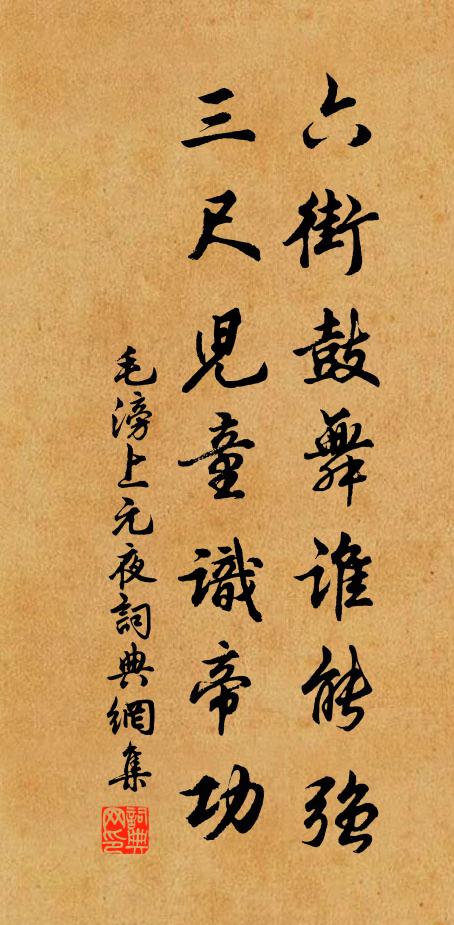 六街鼓舞谁能强
三尺兒童識帝功
毛滂上元夜詞典網集
詞典网印